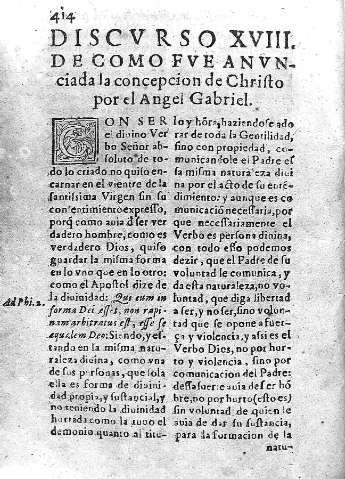 414
DISCVRSO XVIII.
DE COMO FVE ANVN-
ciada la concepcion de Christo
por el Angel Gabriel.
CON SER
el divino Ver
bo Señor ab-
soluto de to-
do lo criado no quiso en-
carnar en el vientre de la
santissima Virgen sin su
consentimiento expresso,
porq̃ como auia d̃ ser ver
dadero hombre, como es
verdadero Dios, quiso
guardar la misma forma
en lo vno que en lo otro:
como el Apostol dize de
Ad Phi. 2.
la diuinidad: Qui cum in
forma Dei esset, non rapi-
nam arbitratus est, esse se
æqualem Deo: Siendo, y es-
tando en la misma natu-
raleza diuina, como vna
de sus personas, que sola
ella es forma de diuini-
dad propia, y sustancial, y
no teniendo la diuinidad
hurtada como la tuuo el
demonio quanto al titu-
lo y hõra, haziendose ado
rar de toda la Gentilidad,
sino con propiedad, co-
municandole el Padre es
sa misma naturaleza diui
na por el acto de su enté-
dimiento: y aunque es co
municació necessaria, por
que necessariamente el
Verbo es persona diuina,
con todo esso podemos
dezir, que el Padre de su
voluntad le comunica, y
da esta naturaleza, no vo-
luntad, que diga libertad
a ser, y no ser, sino volun-
tad que se opone a fuer-
ça y violencia, y assi es el
Verbo Dios, no por hur-
to y violencia, sino por
comunicacion del Padre:
dessa suerte auia de ser hó
bre, no por hurto (esto es)
sin voluntad de quien le
auia de dar su sustancia,
para la formacion de la
natu-